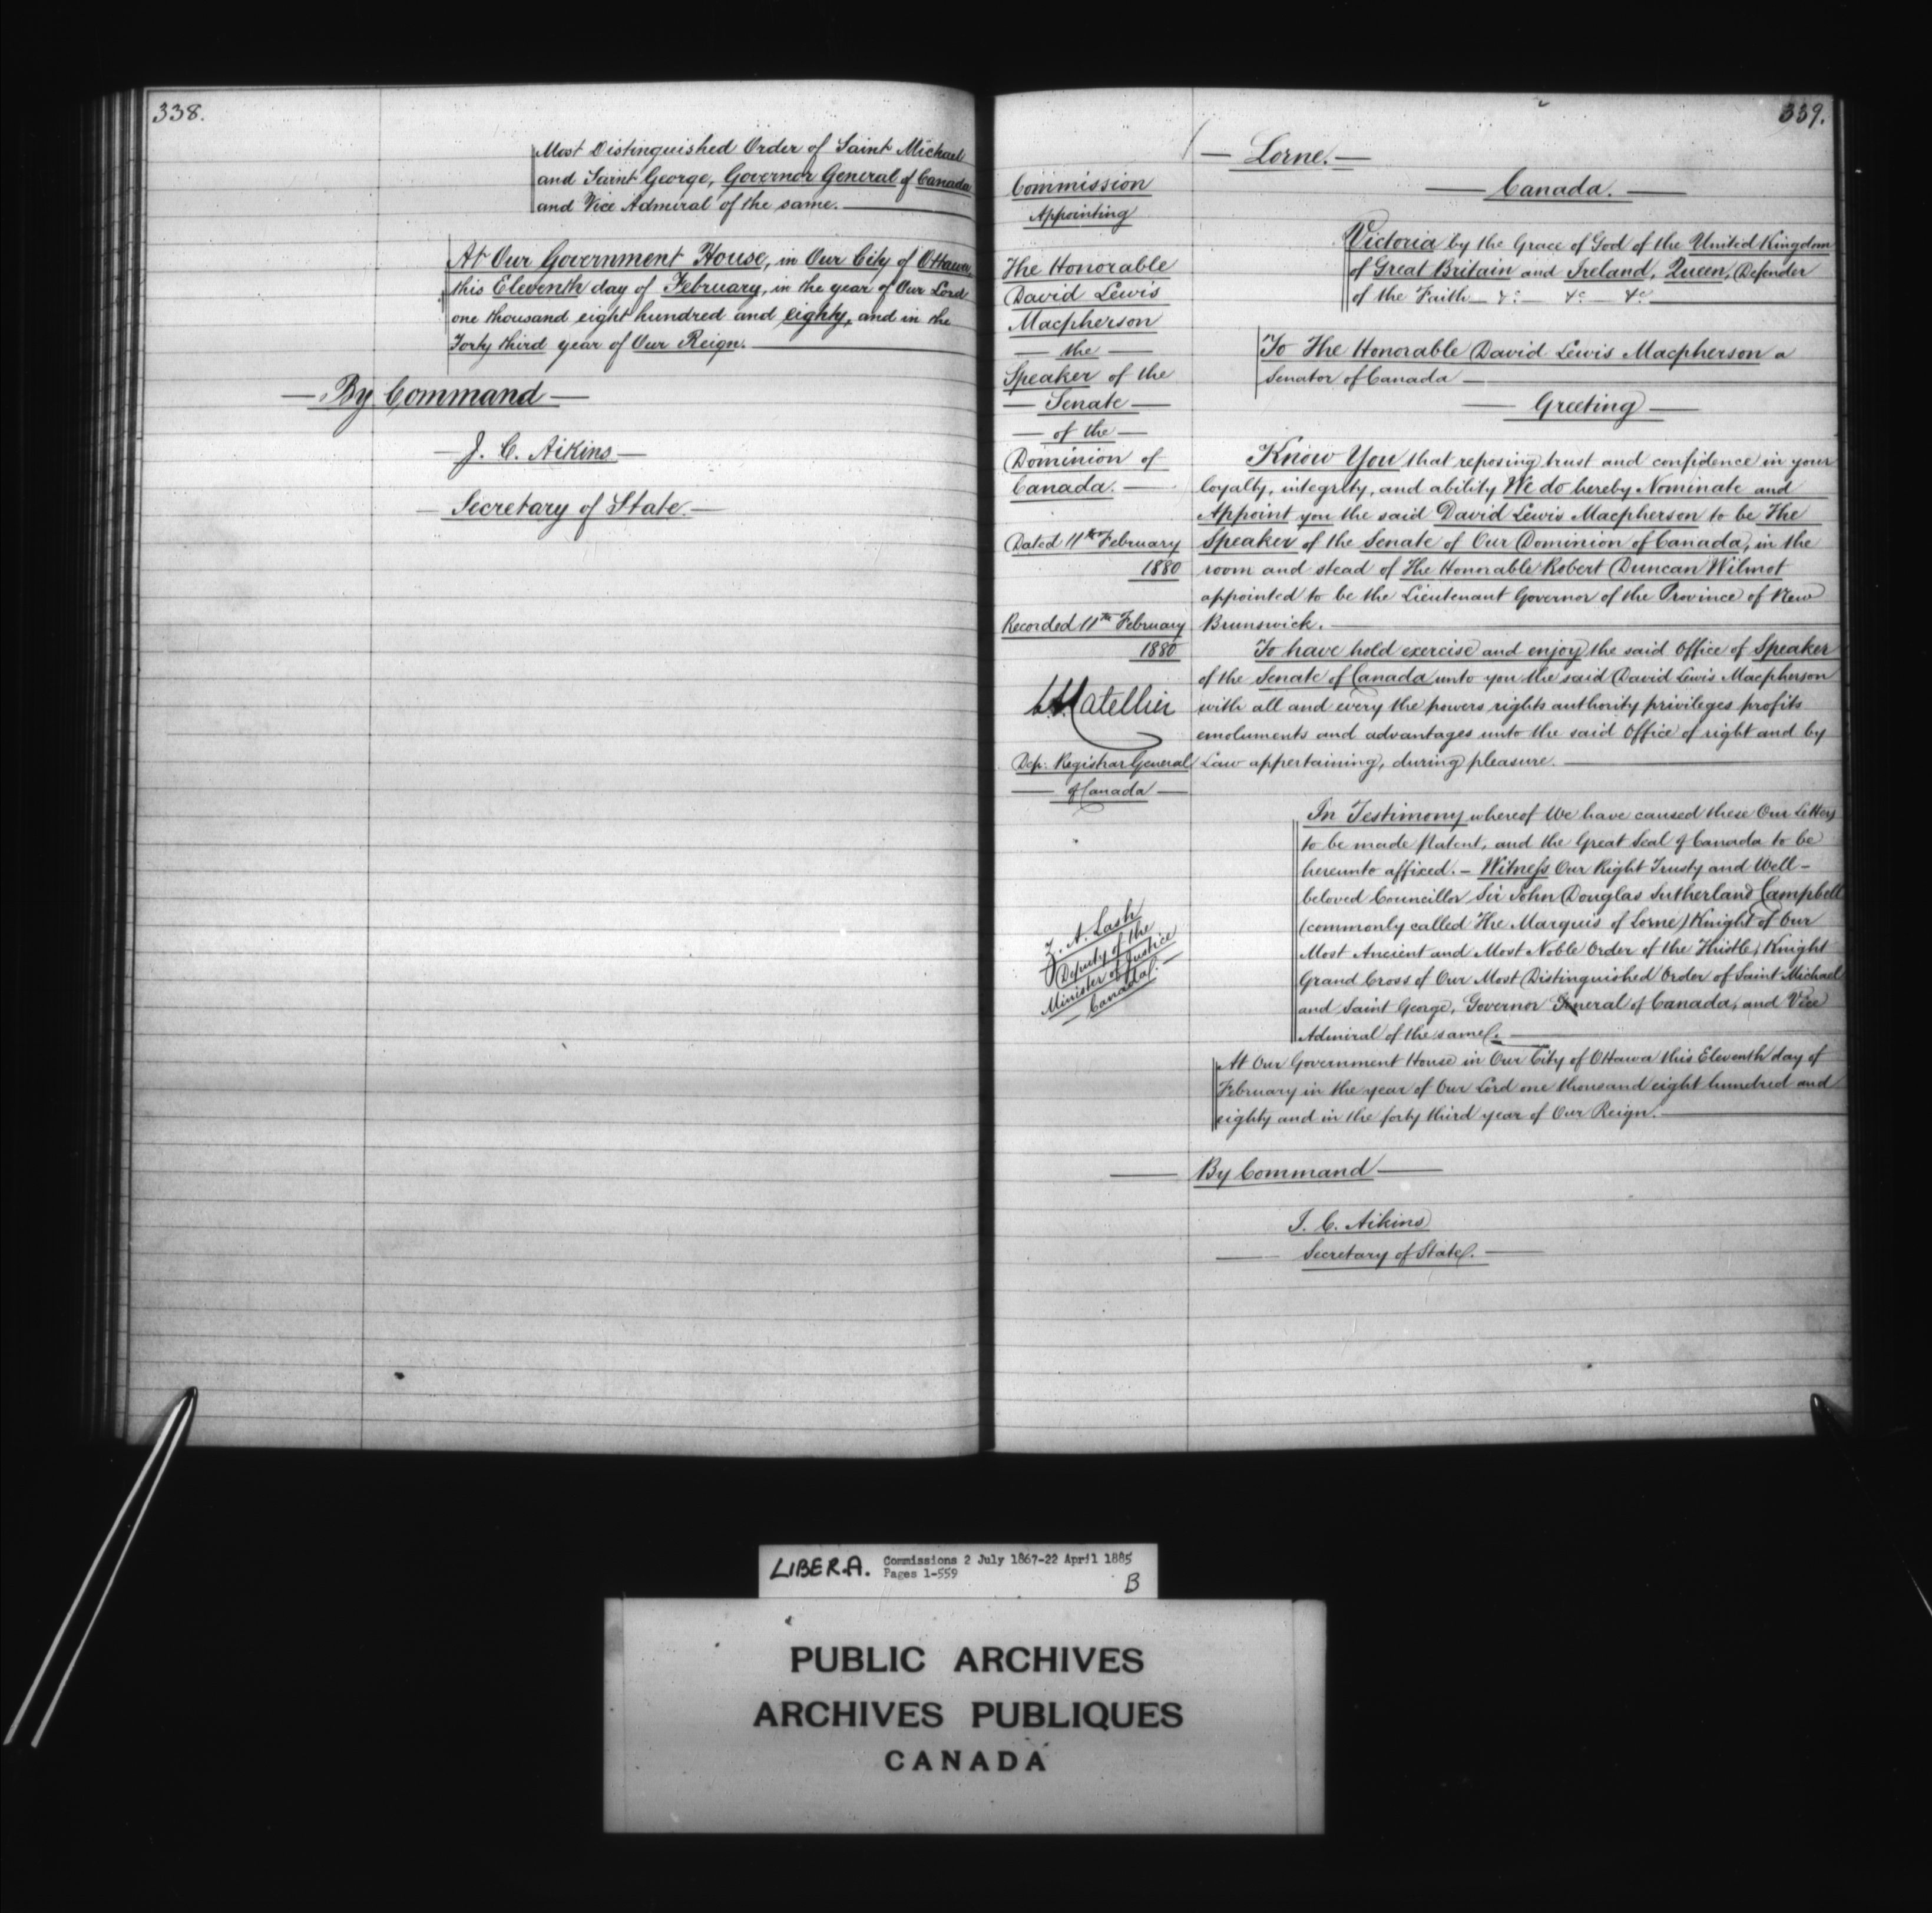 338.
Most Distinguished Order of Saint Michael
and Saint George, Governor General of Canada
and Vice Admiral of the same.
At Our Government House, in Our City of Ottawa,
this Eleventh day of February, in the year of Our Lord
one thousand eight hundred and eighty, and in the
Forty third year of Our Reign.
By Command
J. C. Aikins
Secretary of State.
339.
Lorne.
Canada.
Commission
Appointing
The Honorable
David Lewis
Macpherson
the
Speaker of the
Senate
of the
Dominion of
Canada.
Dated 11th February
1880
Recorded 11th February
1880
Dep: Registrar General
of Canada
Z. A. Lash
Deputy of the
Minister of Justice
Canada.
Victoria by the Grace of God of the United Kingdom
of Great Britain and Ireland, Queen, Defender
of the Faith &c &c &c
To The Honorable David Lewis Macpherson a
Senator of Canada
Greeting
Know You that reposing trust and confidence in your
loyalty, integrity, and ability We do hereby Nominate and
Appoint you the said David Lewis Macpherson to be The
Speaker of the Senate of Our Dominion of Canada, in the
room and stead of The Honorable Robert Duncan Wilmot
appointed to be the Lieutenant Governor of the Province of New
Brunswick.
To have hold exercise and enjoy the said Office of Speaker
of the Senate of Canada unto you the said David Lewis Macpherson
with all and every the powers rights authority privileges profits
emoluments and advantages unto the said Office of right and by
Law appertaining, during pleasure.
In Testimony whereof We have caused these Our Letters
to be made Patent, and the Great Seal of Canada to be
hereunto affixed. – Witness Our Right Trusty and Well-
beloved Councillor Sir John Douglas Sutherland Campbell
(commonly called The Marquis of Lorne) Knight of Our
Most Ancient and Most Noble Order of the Thistle, Knight
Grand Cross of Our Most Distinguished Order of Saint Michael
and Saint George, Governor General of Canada, and Vice
Admiral of the same.
At Our Government House in Our City of Ottawa this Eleventh day of
February in the year of Our Lord one thousand eight hundred and
eighty and in the forty third year of Our Reign.
By Command
J. C. Aikins
Secretary of State.
LIBER.A. Commissions 2 July 1867-22 April 1885
Pages 1-559
B
PUBLIC ARCHIVES
ARCHIVES PUBLIQUES
CANADA